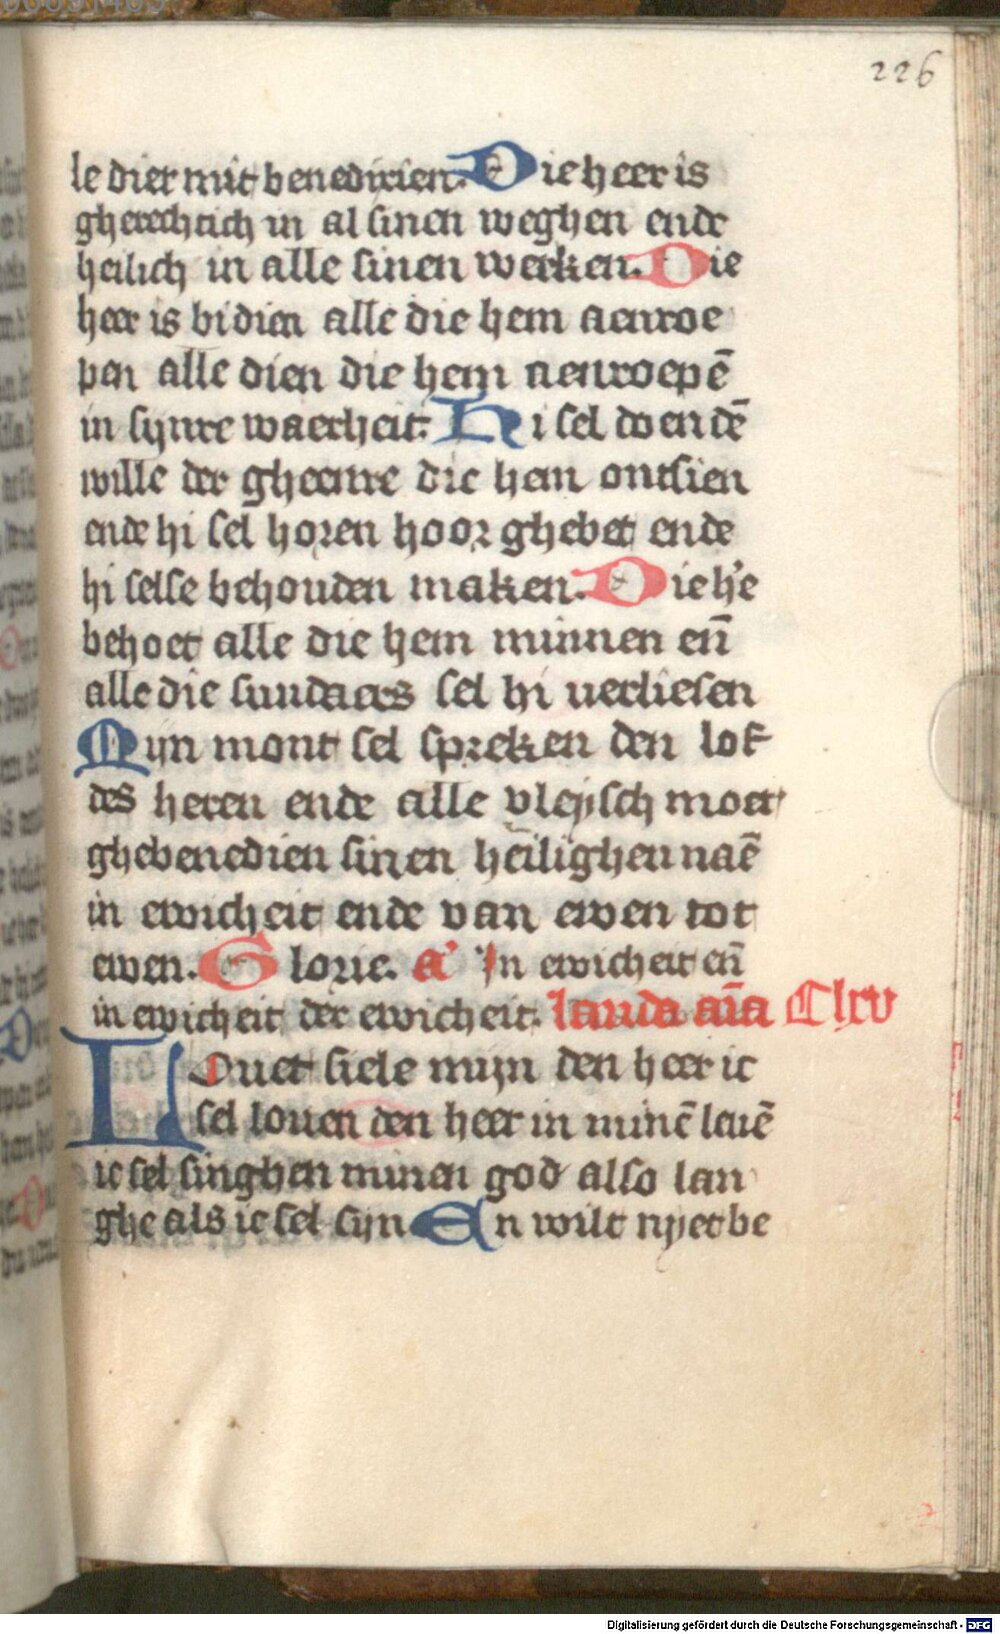 226
le dier mit benedixien. Die heer is
gherechtich in al sinen weghen ende
heilich in alle sinen werken. Die
heer is bi dien alle die hem aenroe
pen alle dien die hem aenroepē
in synre waerheit. Hi sel doen dē
wille der gheenre die hem ontsien
ende hi sel horen hoor ghebet ende
hi selse behouden maken. Die h'e
behoet alle die hem minnen en̄
alle die sundaers sel hi verliesen
Mijn mont sel spreken den lof
des heren ende alle vleysch moet
ghebenedien sinen heilighen naē
in ewicheit ende van ewen tot
ewen. Glorie. a' In ewicheit en̄
in ewicheit der ewicheit. lauda aīa Clxv
Louet siele mijn den heer ic
sel louen den heer in minē leuē
ic sel singhen minen god also lan
ghe als ic sel syn En wilt nyet be
Digitalisierung gefördert durch die Deutsche Forschungsgemeinschaft - DFG